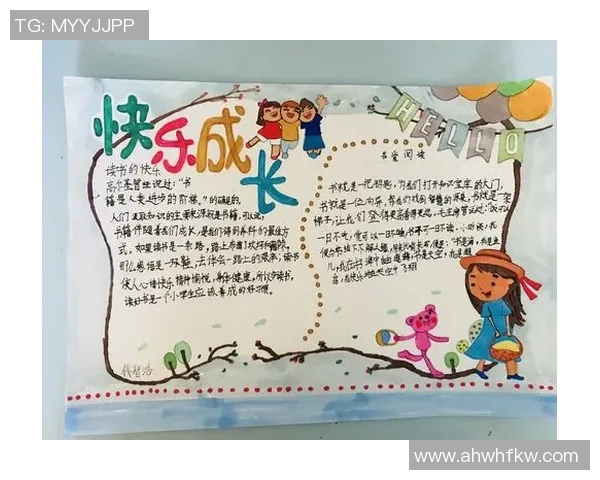 TG: MYYJJPP
快乐成长
HELLO
读书的快乐
高尔基曾经说过："书
籍是人类进步的阶梯。"的确是的,
人们汲取知识的主要来源就是书籍,可以说,
书籍伴随着我们成长,是我们得到养料的最佳方
式。如果读书是一条路,路上布满了坎坷和崎岖,
那么思悟是一双鞋,去体会一路上的艰辛,读书
使人心情快乐,精神愉悦,身体健康,所以多读书,
读好书是一个小学生应该养成的好习惯。
书爱阅读
书就是一把钥匙,为我们打开知识宝库的大门,
书就是一位向导,带我们找到智慧的源泉,书就是一架
梯子,让我们登得更高看得更远,毛主席曾说过:"饭可以
一日不吃,觉可以一日不睡,书不可一日不读。
钱智浩
www.ahwhfkw.com